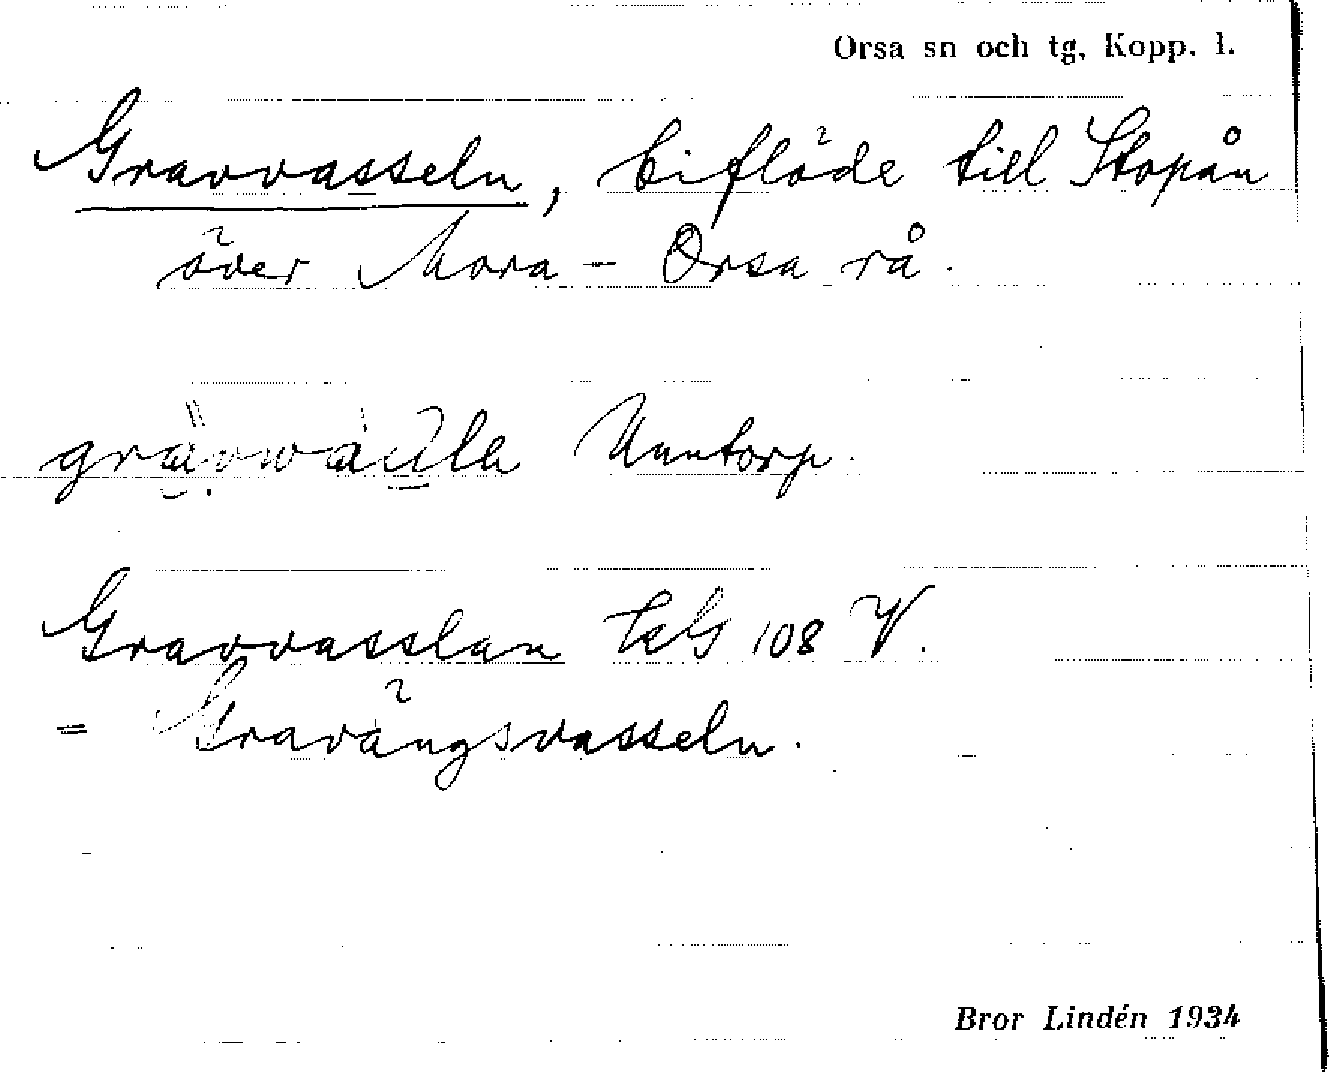 Orsa sn och tg, Kopp. l.
Gravvasseln, biflöde till Stopån
över Mora - Orsa rå.
Unntorp.
Gravvasslan KG 108 V.
= Gravängsvasseln.
Bror Lindén 1934